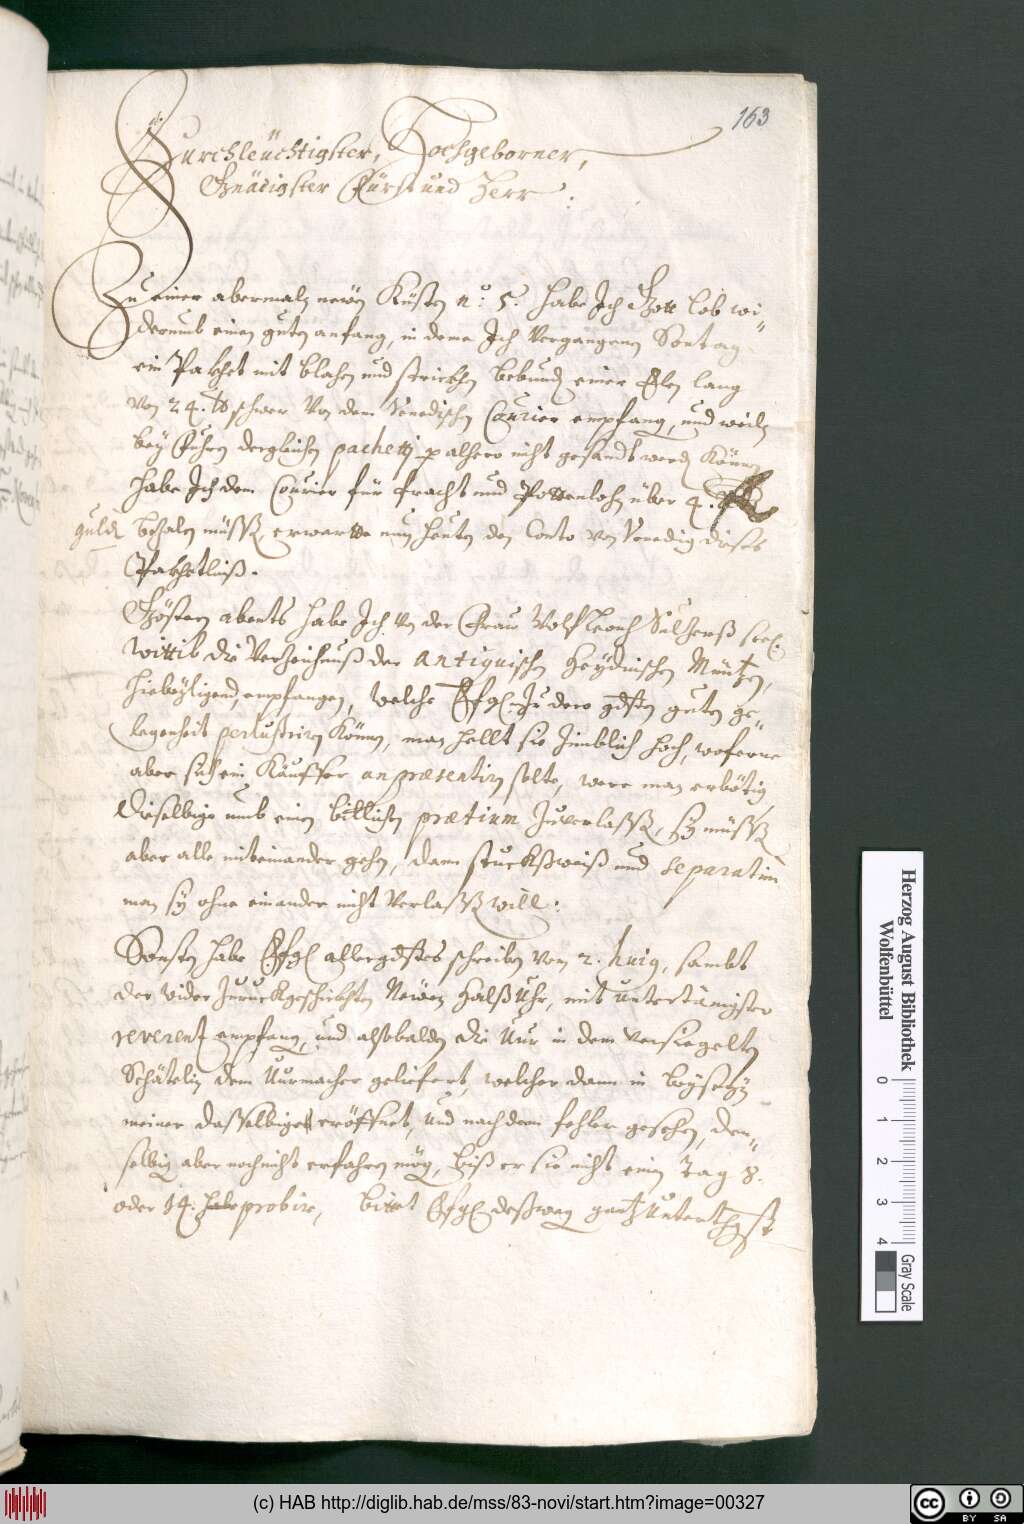 163
Durchleüchtigster, Hochgeborner,
Gnädigster Fürst und Herr:
Zu einer abermaln newen Küsten n.º 5. habe Ich Gott lob wi-
derumb einen guten anfang, in deme Ich vergangenen Sontag
ein Pakhet mit blahen und strickhen bebunden einer Elen lang
von 24. lb schwer von dem Venedischen Courier empfangen, und weiln
bey Fuhren dergleichen pachetti p alhero nicht gesandt werden können
habe Ich dem Courier für fracht und Pottenlohn über 4.
gulden bezalen müssen, erwartte nun heuten den Conto von Venedig dises
Pakhetliß.
Göstern abents habe Ich von der Frau Wolf Leonh Sulzerß seel:
Wittib die Verzeichnuß der antiquischen Heydnischen Müntzen,
hiebeyligend, empfangen, welche Efgl. Zu dero gdsten guten ge-
legenheit perlustriren können, man hellt sie Zimblich hoch, woferne
aber sich ein Käuffer anpræsentirn solte, were man erbötig,
dieselbige umb einen billichen prætium Zuverlassen, sy müssen
aber alle miteinander gehen, dann stuckhßweiß und separatim
man sy ohne einander nicht verlassen will:
Sonsten habe Efgl allergdstes schreiben vom 2. huig, sambt
der wider Zuruckgeschickhten Newen Halß Uhr, mit untertänigster
reverentz empfangen, und alsobalden die Uur in dem versiegelten
Schätelin dem Uurmacher geliefert, welcher dann in beysein
meiner dasselbige eröffnet, und nach dem fehler gesehen, den-
selbigen aber noch nicht erfahren mögen, biß er sie nicht einen Tag 8.
oder 14. probire, bittet Efgl deßwegen gantz Unterthgst
Herzog August Bibliothek
Wolfenbüttel
0 1 2 3 4
Gray Scale
(c) HAB http://diglib.hab.de/mss/83-novi/start.htm?image=00327
cc BY SA